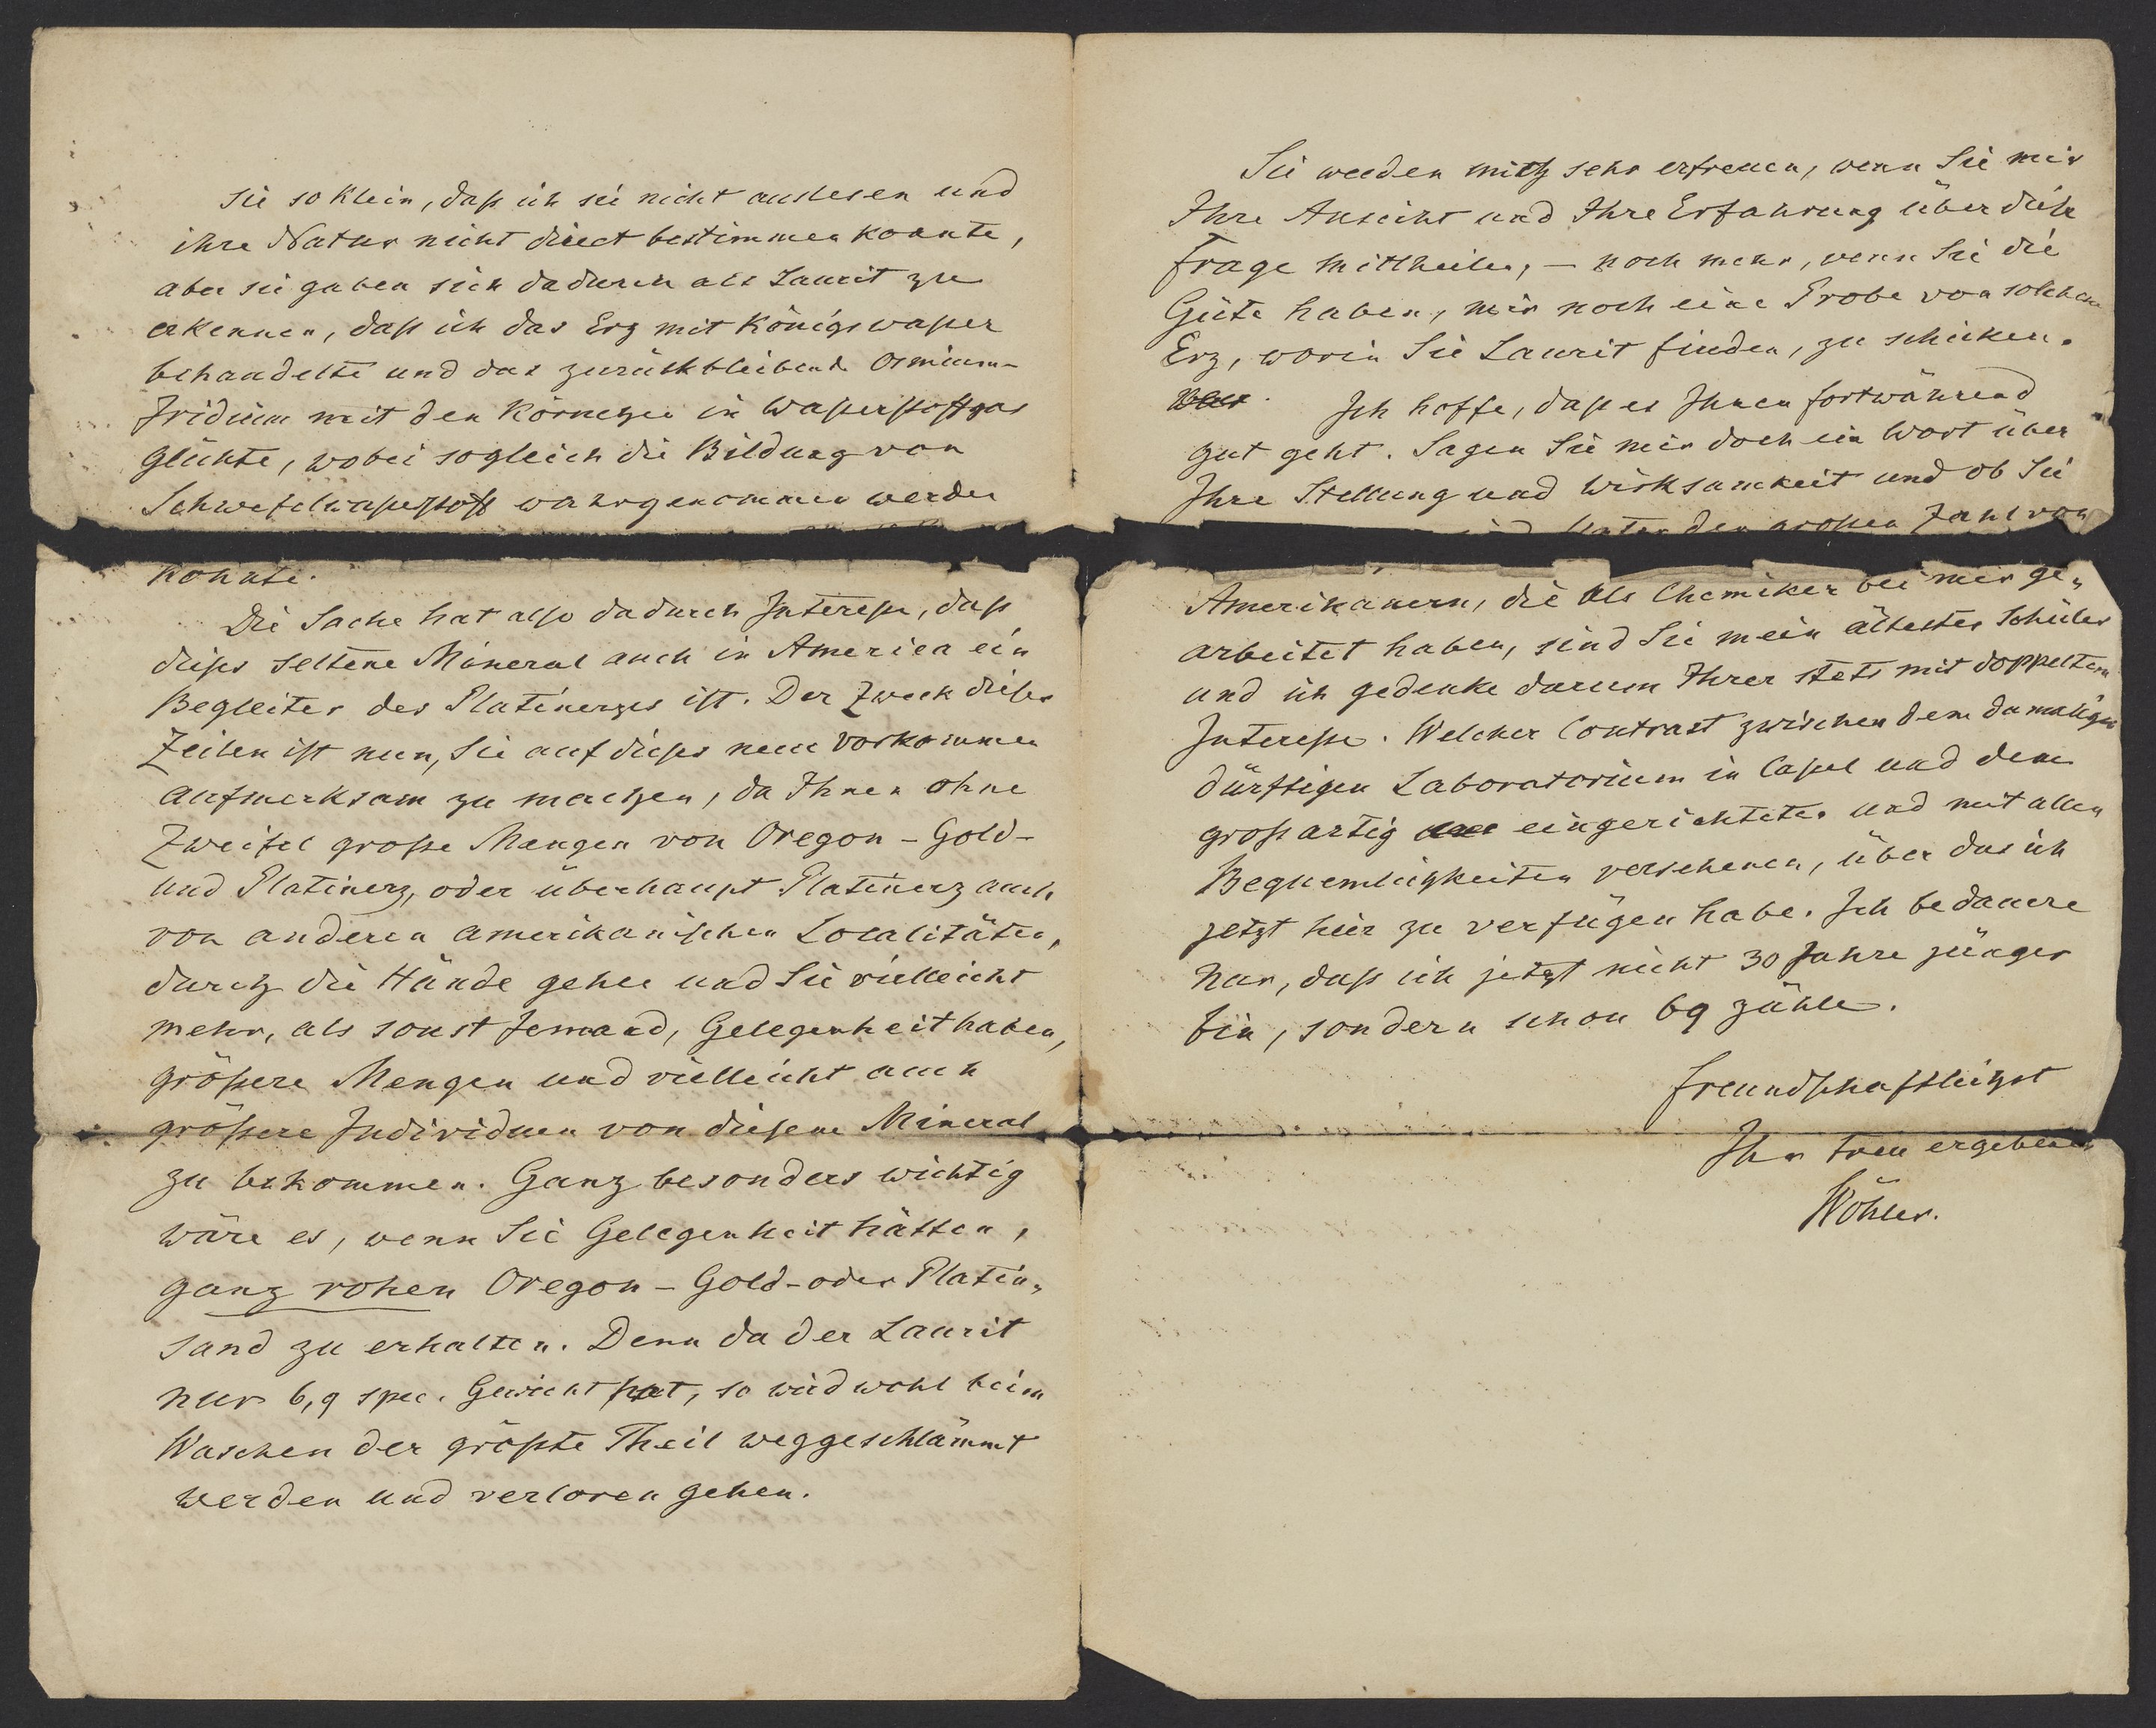 sie so klein, daß ich sie nicht auslesen und
ihre Natur nicht direct bestimmen konnte,
aber sie gaben sich dadurch als Laurit zu
erkennen, daß ich das Erz mit Königswaßer
behandelte und das zurückbleibende Osmium-
Iridium mit den Körnchen in Waßerstoffgas
glühte, wobei sogleich die Bildung von
Schwefelwaßerstoff wahrgenommen werden
konnte.
Die Sache hat also dadurch Intereße, daß
dieses seltene Mineral auch in America ein
Begleiter des Platinerzes ist. Der Zweck dieser
Zeilen ist nun, Sie auf dieses neue Vorkommen
aufmerksam zu machen, da Ihnen ohne
Zweifel große Mengen von Oregon-Gold-
und Platinerz, oder überhaupt Platinerz auch
von anderen amerikanischen Localitäten,
durch die Hände gehen und Sie vielleicht
mehr, als sonst Jemand, Gelegenheit haben,
größere Mengen und vielleicht auch
größere Individuen von diesem Mineral
zu bekommen. Ganz besonders wichtig
wäre es, wenn Sie Gelegenheit hätten,
ganz rohen Oregon-Gold- oder Platin-
sand zu erhalten. Denn da der Laurit
nur 6,9 spec. Gewicht hat, so wird wohl beim
Waschen der größte Theil weggeschlämmt
werden und verloren gehen.
Sie werden mich sehr erfreuen, wenn Sie mir
Ihre Ansicht und Ihre Erfahrung über diese
Frage mittheilen, – noch mehr, wenn Sie die
Güte haben, mir noch eine Probe von solchem
Erz, worin Sie Laurit finden, zu schicken.
Ich hoffe, daß es Ihnen fortwährend
gut geht. Sagen Sie mir doch ein Wort über
Ihre Stellung und Wirksamkeit und ob Sie
Unter der großen Zahl von
Amerikanern, die als Chemiker bei mir ge-
arbeitet haben, sind Sie mein ältester Schüler
und ich gedenke darum Ihrer stets mit doppeltem
Intereße. Welcher Contrast zwischen dem damaligen
dürftigen Laboratorium in Caßel und dem
großartig eingerichteten und mit allen
Bequemlichkeiten versehenen, über das ich
jetzt hier zu verfügen habe. Ich bedauere
nur, daß ich jetzt nicht 30 Jahre jünger
bin, sondern schon 69 zähle.
Freundschaftlichst
Ihr treu ergebener
Wöhler.